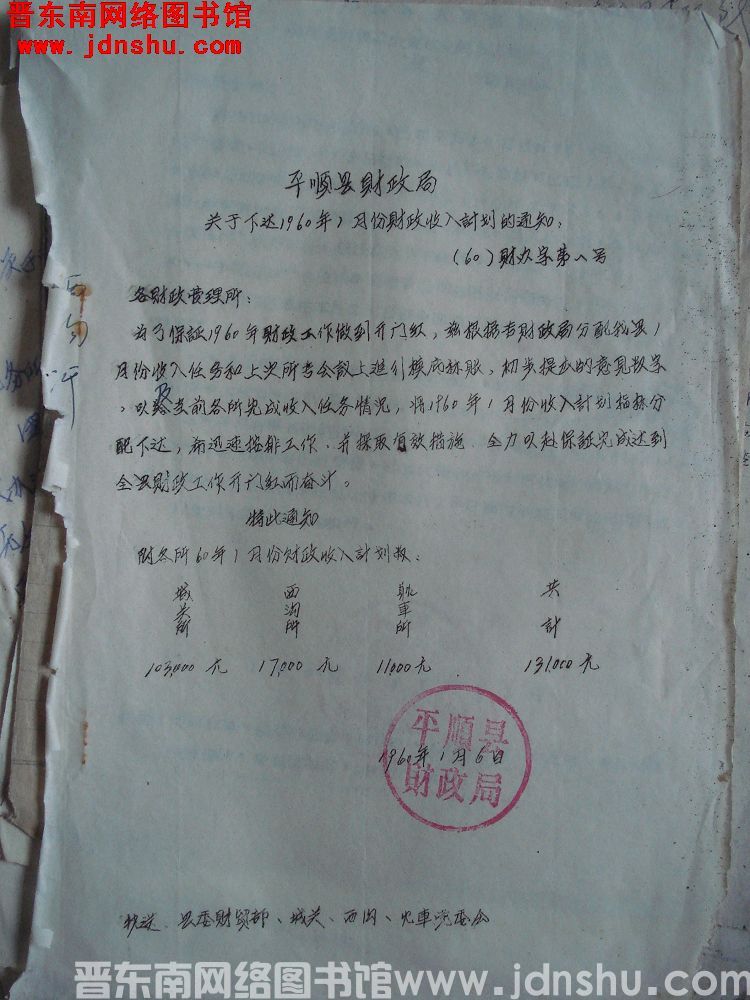 晋东南网络图书馆
www.jdnshu.com
平順县財政局
关于下达1960年1月份財政收入計划的通知:
(60)財办字第八号
各財政管理所:
为了保証1960年財政工作做到开门紅,兹根据省財政局分配我县1
月份收入任务和上次所長会議上进行摸底标賬,初步提出的意見数字
,以及去前各所完成收入任务情况,將1960年1月份收入計划指标分
配下达,希迅速按排工作,并採取有效措施,全力以赴保証完成达到
全县財政工作开门紅而奋斗。
特此通知
附各所60年1月份財政收入計划数:
城关所 西沟所 車所 共計
103,000元 17,000元 11,000元 131,000元
平順县
1960年1月6日
財政局
抄送 县委財貿部、城关、西沟、
晋东南网络图书馆www.jdnshu.com